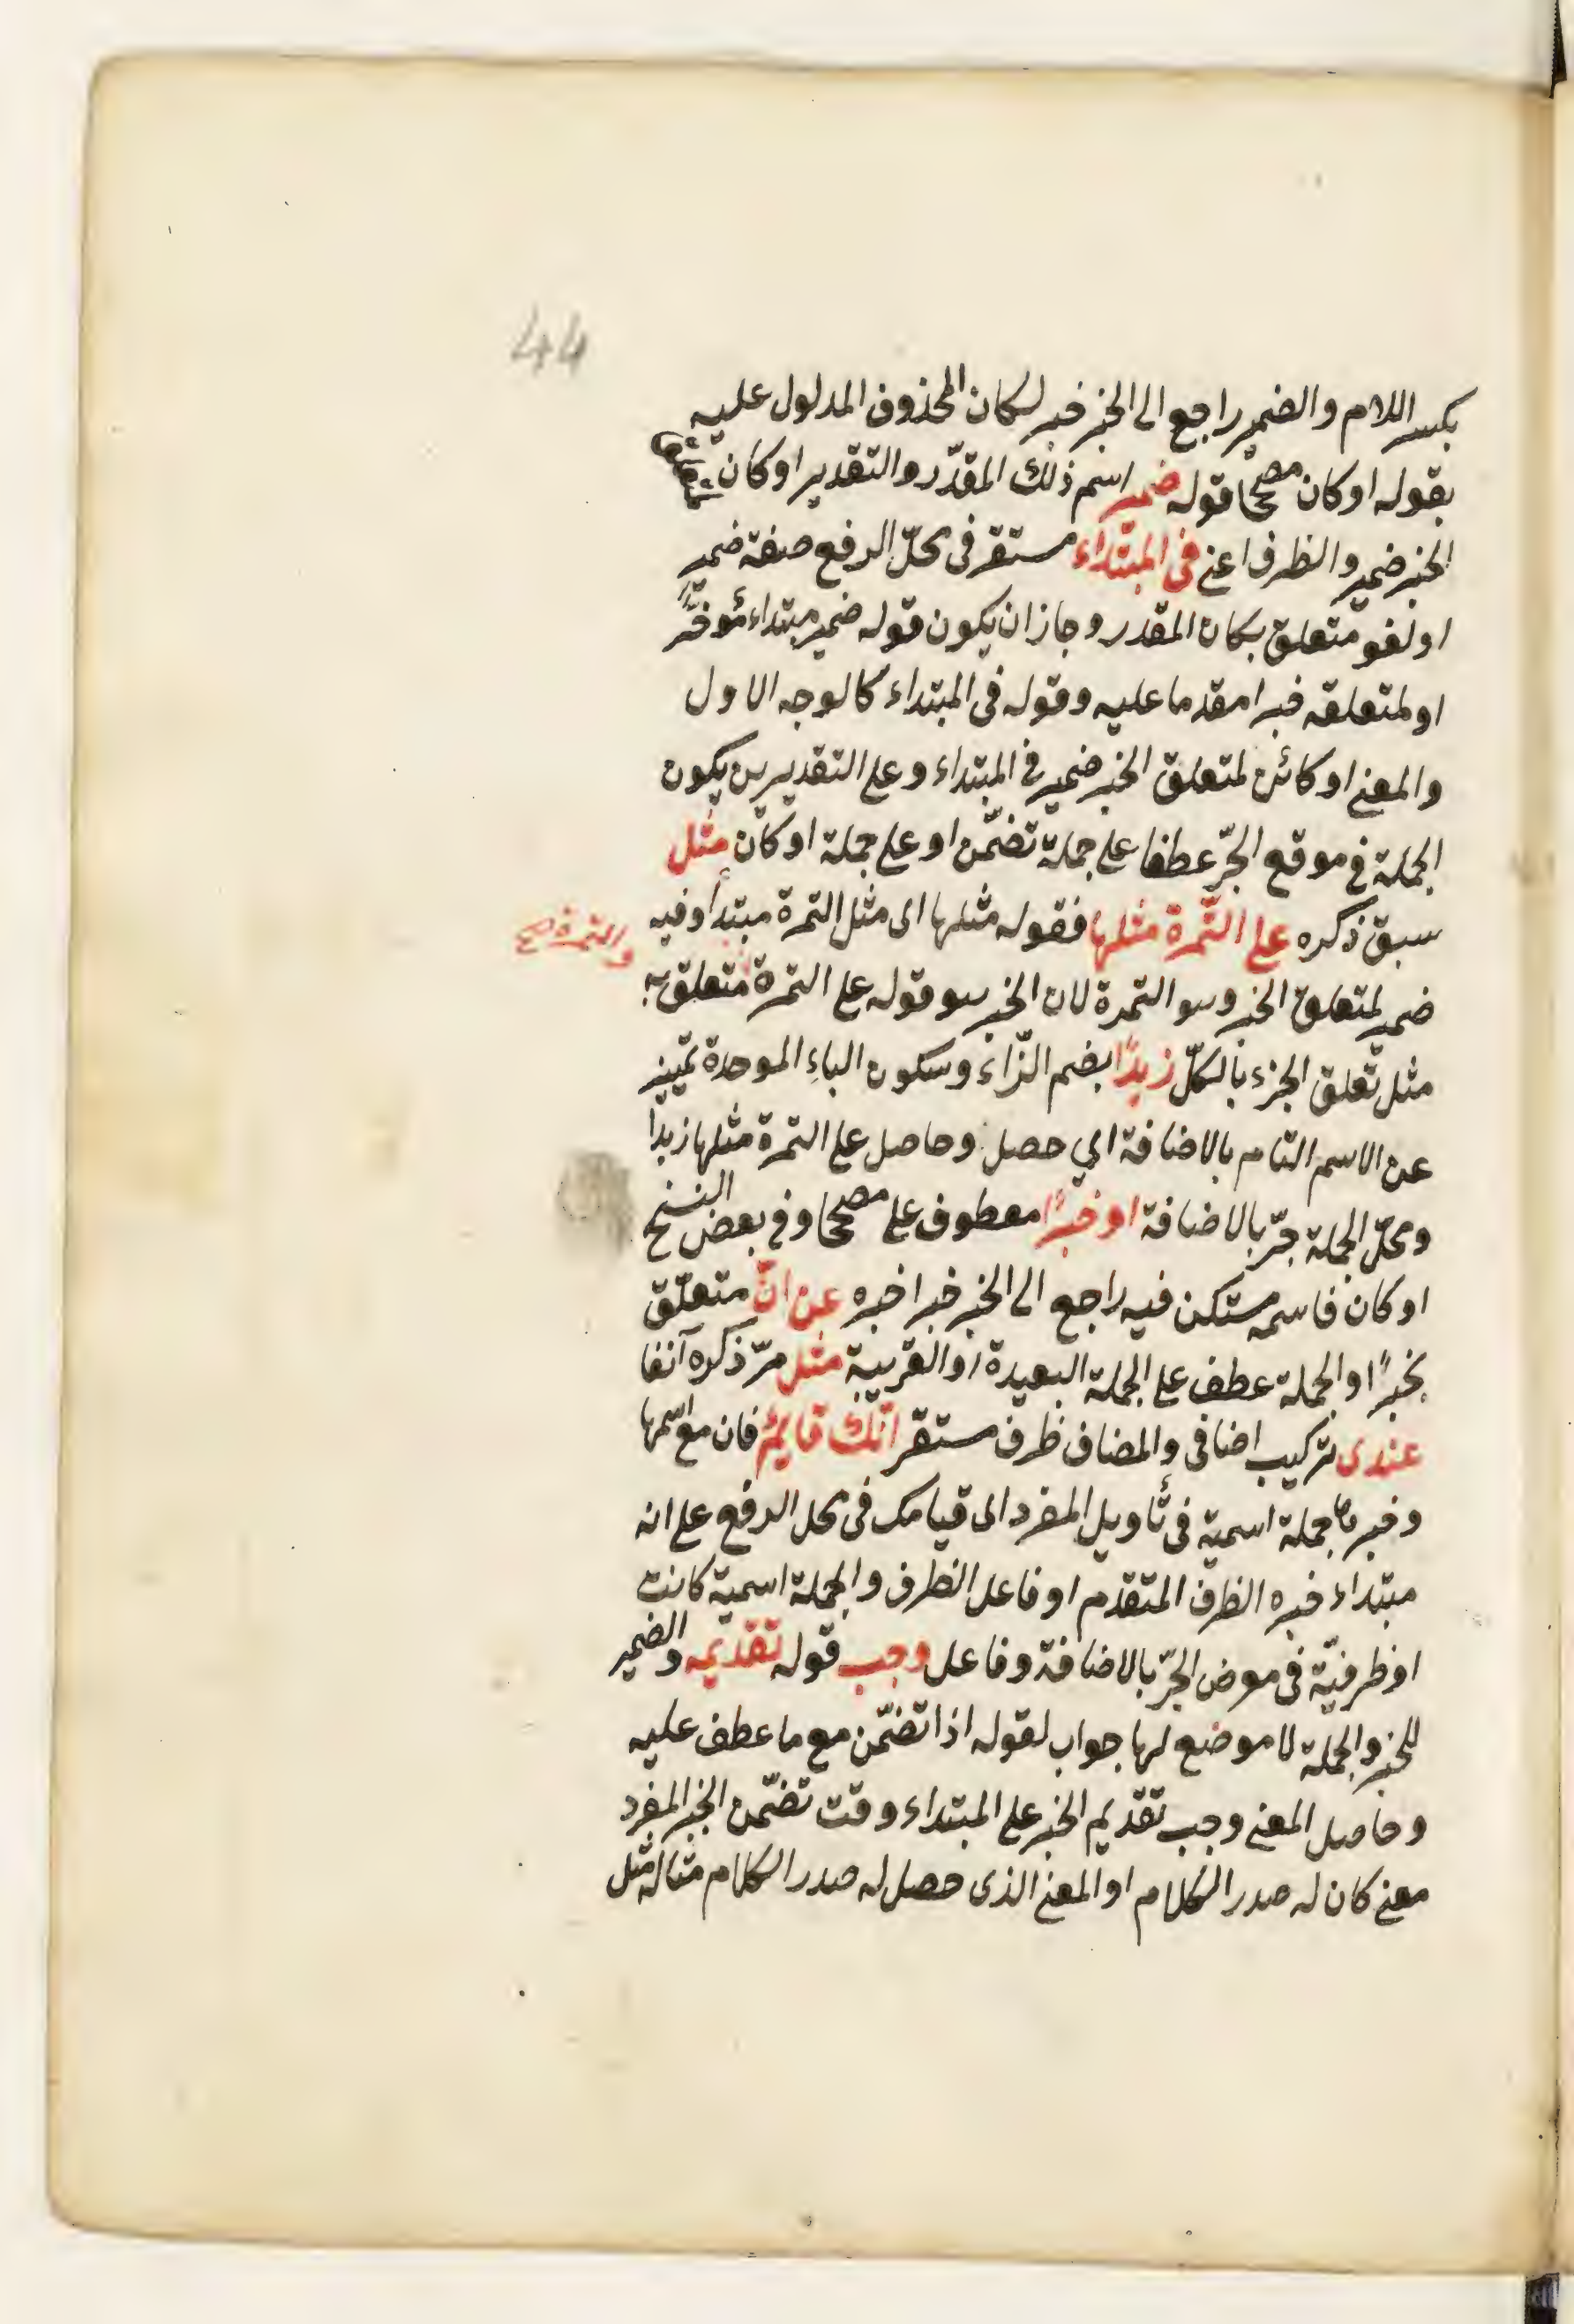 44
بكسر اللام والضمير راجع الى الخبر خبر لكان المحذوف المدلول عليه
بقوله او كان مصححا قوله ضمير اسم ذلك المقدّر والتقدير او كان
الخبر ضمير والظرف اعني فى المبتداء مستقر فى محلّ الرفع صفة ضمير
او لغو متعلق بكان المقدر وجاز ان يكون قوله ضمير مبتداء مؤخرًا
او لمتعلقه خبرا مقدما عليه وقوله فى المبتداء كالوجه الاول
والمعنى او كائن لمتعلق الخبر ضمير فى المبتداء وعلى التقديرين يكون
الجملة فى موقع الجرّ عطفا على جملة تضمّن او على جملة او كان مثل
سبق ذكره على التّمرة مثلها فقوله مثلها اى مثل التمرة مبتدأ وفيه
والتمرة صح
ضمير لمتعلق الخبر وهو التمرة لان الخبر هو قوله على التمرة متعلق به
مثل تعلّق الجزء بالكلّ زبدًا بضم الزّاء وسكون الباء الموحدة تمييز
عن الاسم التام بالاضافة اي حصل وحاصل على التمرة مثلها زبدا
ومحلّ الجملة جرّ بالاضافة او خبرًا معطوف على مصححا وفى بعض النسخ
او كان فاسمه مستكن فيه راجع الى الخبر خبرا خبره عن انّ متعلّق
بخبرًا والجملة عطف على الجملة البعيدة او القريبة مثل مرّ ذكره آنفا
عندى تركيب اضافى والمضاف ظرف مستقر انّك قايمٌ فان مع اسمها
وخبرها جملة اسمية فى تأويل المفرد اى قيامك فى محل الرفع على انه
مبتداء خبره الظرف المتقدم او فاعل الظرف والجملة اسمية كانت
او ظرفيّة فى موض الجرّ بالاضافة وفاعل وجب قوله تقديمه والضمير
للخبر والجملة لا موضع لها جواب لقوله اذا تضمّن مع ما عطف عليه
وحاصل المعنى وجب تقديم الخبر على المبتداء وقت تضمّن الخبر المفرد
معنى كان له صدر الكلام او المعنى الذى حصل له صدر الكلام مثاله مثل